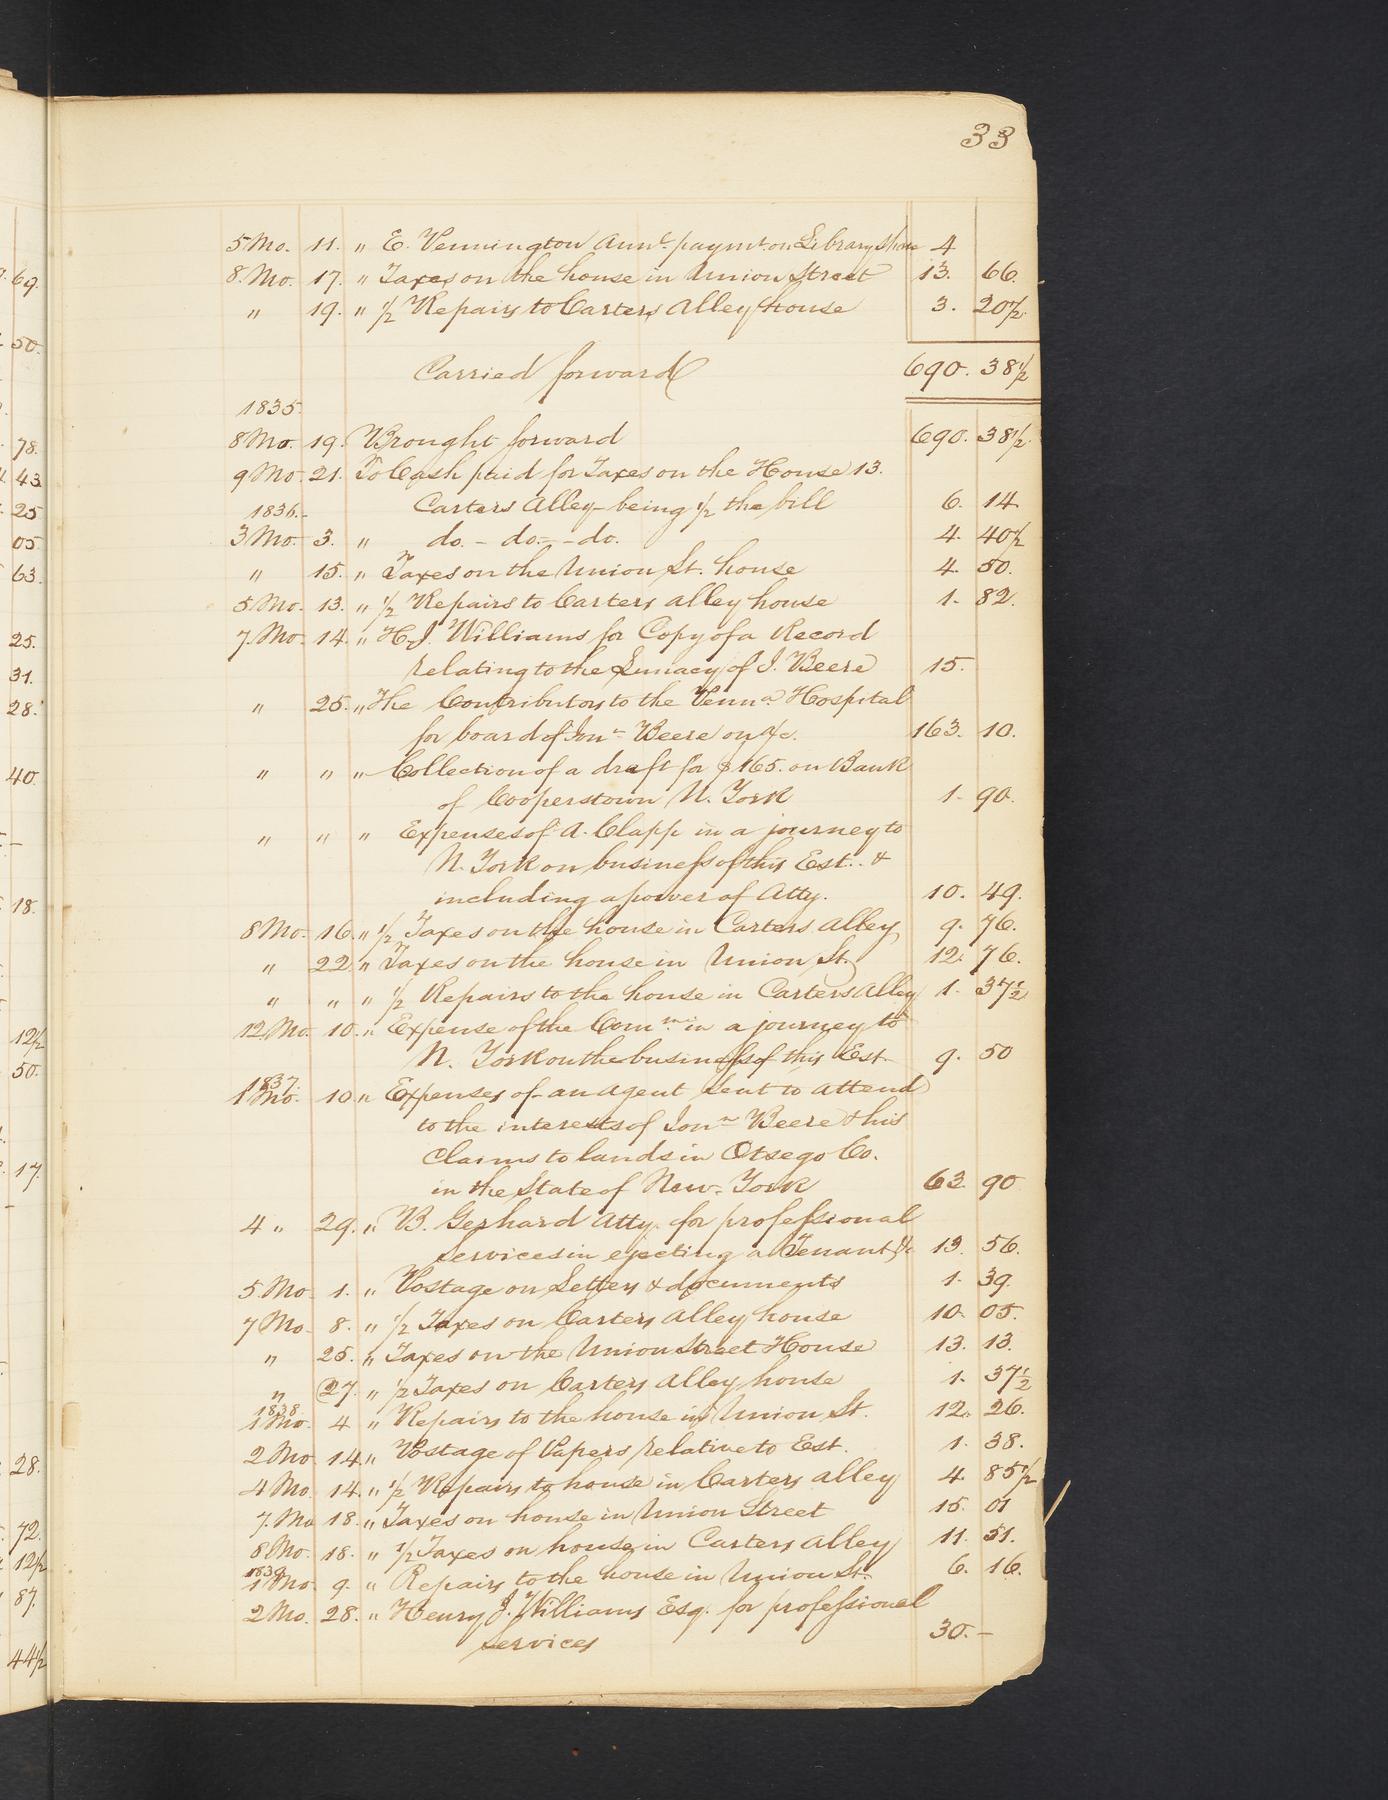 33
5 Mo. 11. " E. Pennington Annl. paymt. on Library Share 4
8. Mo. 17. " Taxes on the house in Union Street 13. 66.
" 19. " 1/2 Repairs to Carters Alley house 3. 20 1/2
Carried forward 690. 38 1/2
1835.
8 Mo. 19. Brought forward 690. 38 1/2
9 Mo. 21. To Cash paid for Taxes on the House 13.
Carters Alley - being 1/2 the bill 6. 14
1836.-
3 Mo. 3. " do. - do. - - do. 4. 40 1/2
" 15. " Taxes on the Union St. house 4. 50.
5 Mo. 13. " 1/2 Repairs to Carters Alley house 1. 82.
7. Mo. 14. " H. J. Williams for Copy of a Record
relating to the Lunacy of J. Beere 15.
" 25. " The Contributors to the Penna. Hospital
for board of Jonn. Beere on a/c. 163. 10.
" " " Collection of a draft for $165. on Bank
of Cooperstown N. York 1. 90.
" " " Expenses of A. Clapp in a journey to
N. York on business of this Est. &
including a power of Atty. 10. 49.
8 Mo. 16. " 1/2 Taxes on the house in Carters Alley 9. 76.
" 22. " Taxes on the house in Union St. 12. 76.
" " " 1/2 Repairs to the house in Carters Alley 1. 37 1/2
12. Mo. 10. " Expense of the Comme. in a journey to
N. York on the business of this Est. 9. 50
1837.
1 Mo. 10 " Expenses of an Agent sent to attend
to the interests of Jonn. Beere & his
Claims to lands in Otsego Co.
in the State of New. York 63. 90
4 " 29. " B. Gerhard Atty. for professional
Services in ejecting a Tenant &c 13. 56.
5. Mo. 1. " Postage on Letters & documents 1. 39.
7 Mo. 8. " 1/2 Taxes on Carters Alley house 10. 05.
" 25. " Taxes on the Union Street House 13. 13.
" 27. " 1/2 Taxes on Carters Alley house 1. 37 1/2
1838.
1 Mo. 4 " Repairs to the house in Union St. 12. 26.
2 Mo 14. " Postage of Papers relative to Est. 1. 38.
4 Mo. 14. " 1/2 Repairs to house in Carters Alley 4. 85 1/2
7. Mo 18. " Taxes on house in Union Street 15. 01
8 Mo. 18. " 1/2 Taxes on house in Carters Alley 11. 51.
1839.
1 Mo. 9. " Repairs to the house in Union St. 6. 16.
2 Mo. 28. " Henry J. Williams Esq. for professional
Services 30. -